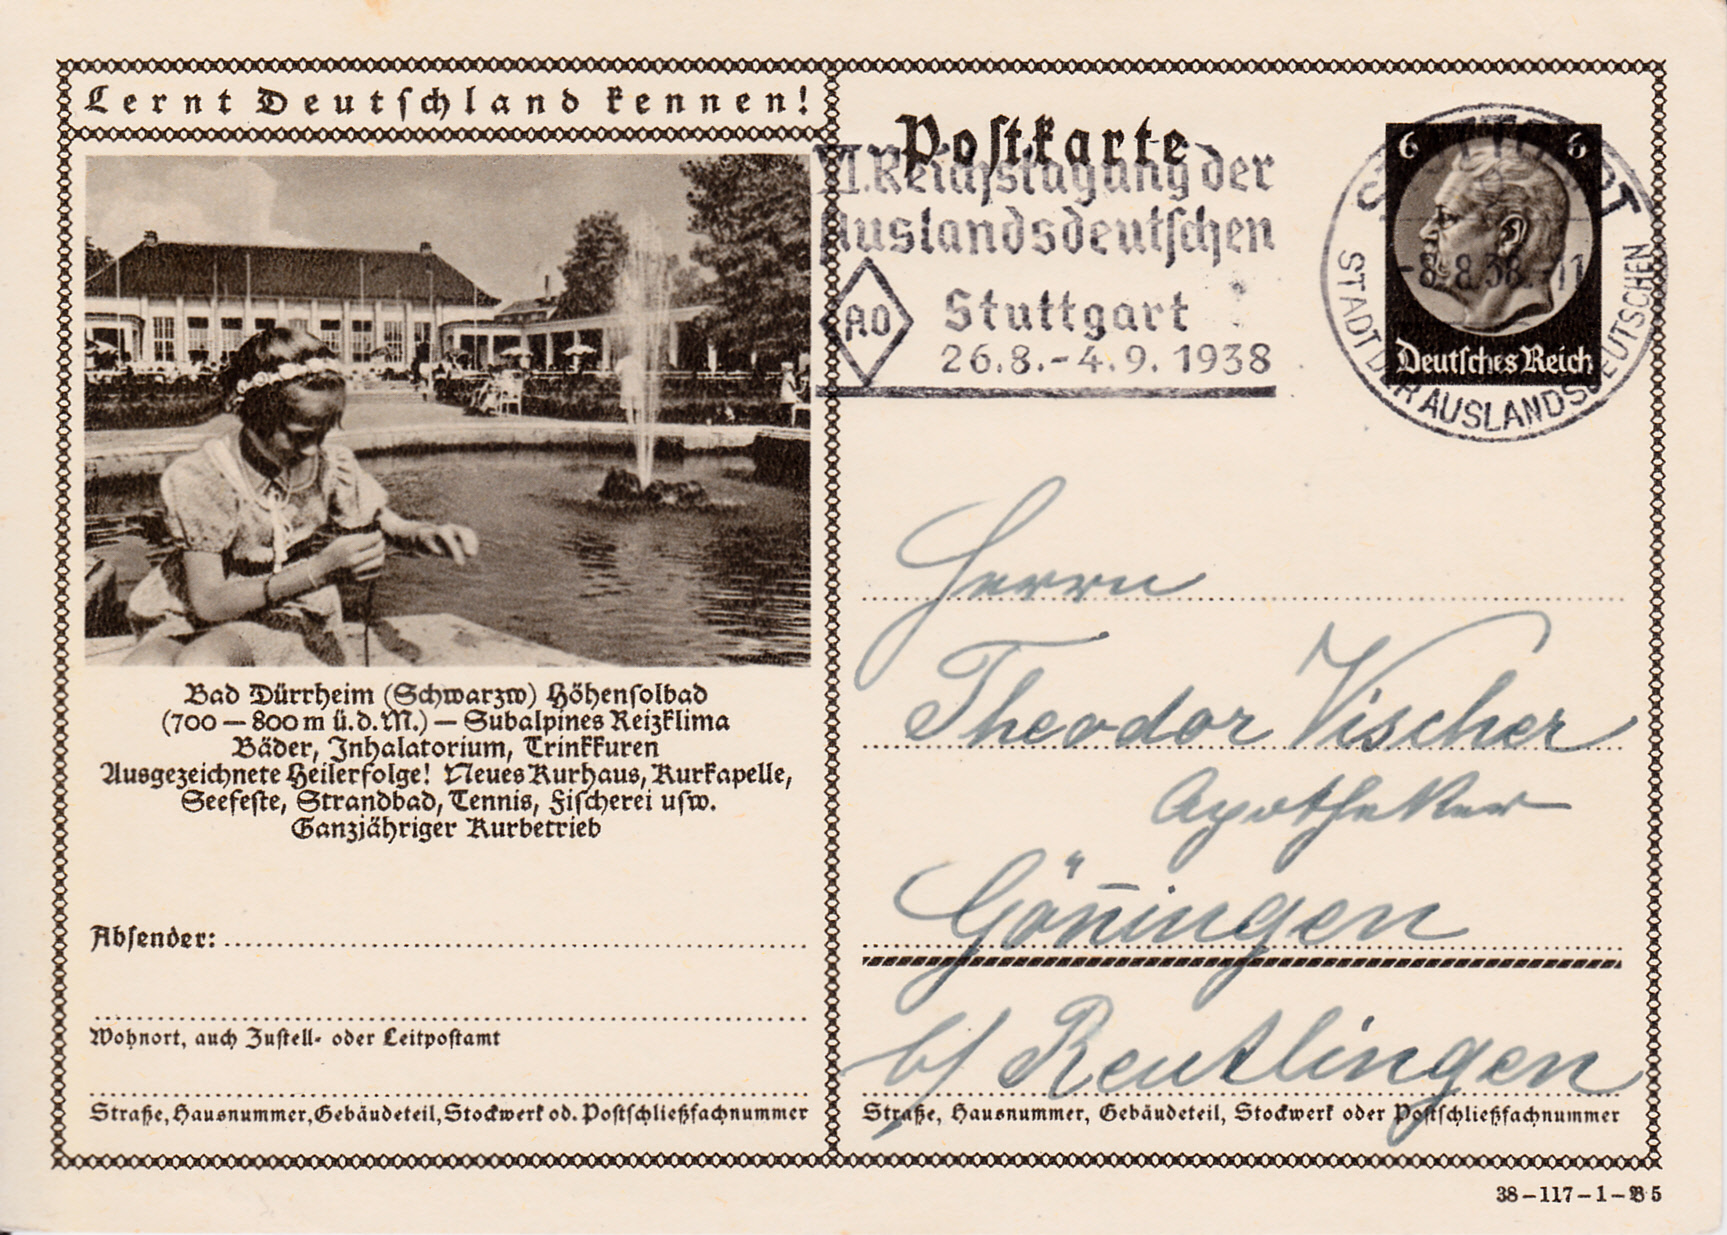 Lernt Deutschland kennen!
Bad Dürrheim (Schwarzw) Höhensolbad
(700 – 800 m ü.d.M.) – Subalpines Reizklima
Bäder, Inhalatorium, Trinkkuren
Ausgezeichnete Heilerfolge! Neues Kurhaus, Kurkapelle,
Seefeste, Strandbad, Tennis, Fischerei usw.
Ganzjähriger Kurbetrieb
Absender:
Wohnort, auch Zustell- oder Leitpostamt
Straße, Hausnummer, Gebäudeteil, Stockwerk od. Postschließfachnummer
Postkarte
VI. Reichstagung der
Auslandsdeutschen
AO
Stuttgart
26.8.-4.9. 1938
6 6
Deutsches Reich
STUTTGART
-8.8.38.-11
STADT DER AUSLANDSDEUTSCHEN
Herrn
Theodor Vischer
Apotheker
Göñingen
b/ Reutlingen
Straße, Hausnummer, Gebäudeteil, Stockwerk oder Postschließfachnummer
38–117–1–B5